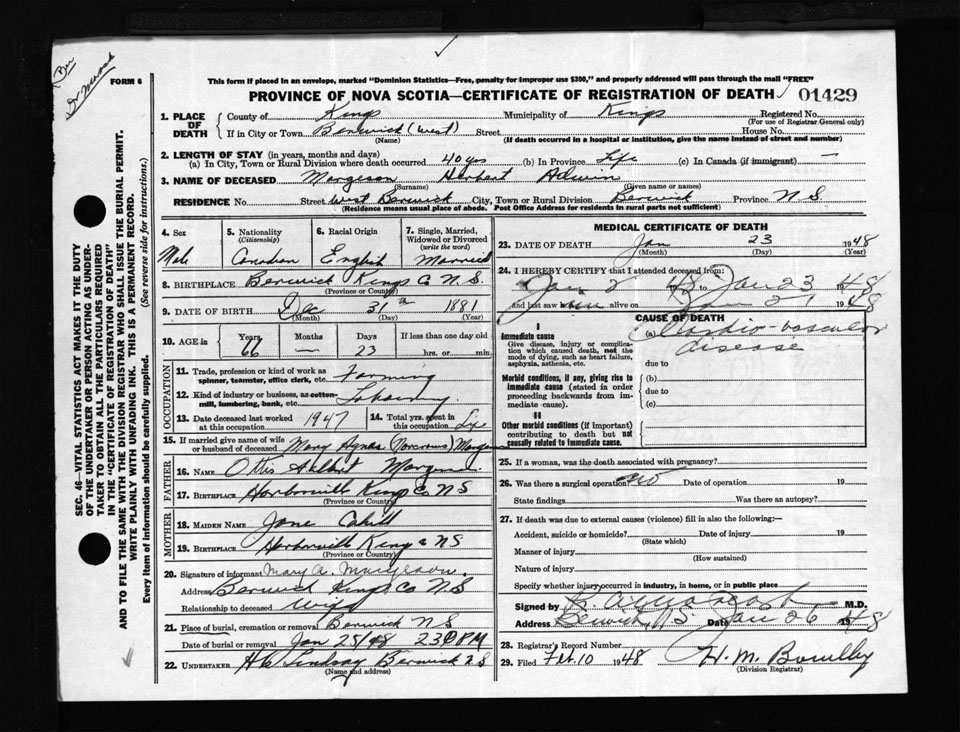 FORM 6
This form if placed in an envelope, marked "Dominion Statistics—Free, penalty for improper use $300," and properly addressed will pass through the mail "FREE"
PROVINCE OF NOVA SCOTIA—CERTIFICATE OF REGISTRATION OF DEATH 01429
SEC. 46—VITAL STATISTICS ACT MAKES IT THE DUTY
OF THE UNDERTAKER OR PERSON ACTING AS UNDER-
TAKER TO OBTAIN ALL THE PARTICULARS REQUIRED
IN THE "CERTIFICATE OF REGISTRATION OF DEATH"
AND TO FILE THE SAME WITH THE DIVISION REGISTRAR WHO SHALL ISSUE THE BURIAL PERMIT.
WRITE PLAINLY WITH UNFADING INK. THIS IS A PERMANENT RECORD.
Every item of information should be carefully supplied. (See reverse side for instructions.)
1. PLACE OF DEATH
County of Kings Municipality of Kings Registered No.
(For use of Registrar General only)
If in City or Town Berwick (West) Street House No.
(Name) (If death occurred in a hospital or institution, give the name instead of street and number)
2. LENGTH OF STAY (in years, months and days)
(a) In City, Town or Rural Division where death occurred 40 yrs (b) In Province Life (c) In Canada (if immigrant) —
3. NAME OF DECEASED Margeson Herbert
(Surname) (Given name or names)
RESIDENCE No. Street West Berwick City, Town or Rural Division Berwick Province N S
(Residence means usual place of abode. Post Office Address for residents in rural parts not sufficient)
4. Sex Male
5. Nationality (Citizenship) Canadian
6. Racial Origin English
7. Single, Married, Widowed or Divorced (write the word) Married
8. BIRTHPLACE Berwick Kings Co N.S.
(Province or County)
9. DATE OF BIRTH Dec 31 1881
(Month) (Day) (Year)
10. AGE in Years 66 Months — Days 23 If less than one day old hrs. or min.
OCCUPATION
11. Trade, profession or kind of work as spinner, teamster, office clerk, etc. Farming
12. Kind of industry or business, as cotton-mill, lumbering, bank, etc.
13. Date deceased last worked at this occupation 1947
14. Total yrs. spent in this occupation Life
15. If married give name of wife or husband of deceased Mary Agnes
FATHER
16. NAME
17. BIRTHPLACE Harborville Kings Co NS
(Province or Country)
MOTHER
18. MAIDEN NAME Jane Cahill
19. BIRTHPLACE Harborville Kings NS
(Province or Country)
20. Signature of informant Mary A. Margeson
Address Berwick Kings Co N.S
Relationship to deceased wife
21. Place of burial, cremation or removal Berwick NS
Date of burial or removal Jan 25/48 PM
22. UNDERTAKER Lindsay Berwick N S
(Name and address)
MEDICAL CERTIFICATE OF DEATH
23. DATE OF DEATH Jan 23 1948
(Month) (Day) (Year)
24. I HEREBY CERTIFY that I attended deceased from:
Jan 2 Jan 23 48
and last saw alive on 1948
CAUSE OF DEATH
I
Immediate cause
Give disease, injury or complication which caused death, not the mode of dying, such as heart failure, asphyxia, asthenia, etc.
(a) Cardio-vascular disease
due to
Morbid conditions, if any, giving rise to immediate cause (stated in order proceeding backwards from immediate cause).
(b)
due to
(c)
II
Other morbid conditions (if important) contributing to death but not causally related to immediate cause.
25. If a woman, was the death associated with pregnancy?
26. Was there a surgical operation? no Date of operation 19
State findings Was there an autopsy?
27. If death was due to external causes (violence) fill in also the following:—
Accident, suicide or homicide? Date of injury 19
(State which)
Manner of injury
(How sustained)
Nature of injury
Specify whether injury occurred in industry, in home, or in public place
Signed by M.D.
Address Berwick, N.S Date Jan 26 1948
28. Registrar's Record Number
29. Filed Feb. 10 1948 H. M.
(Division Registrar)